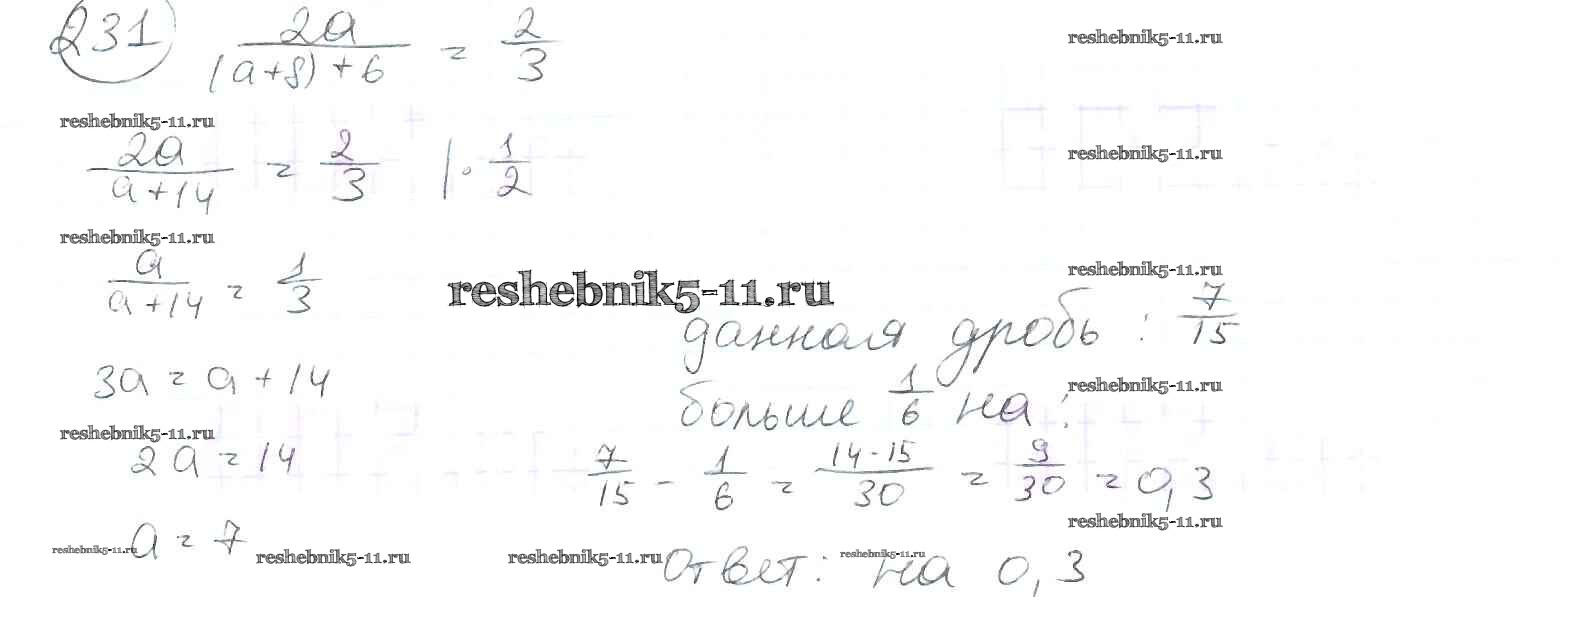 231) 2a/((a+8)+6) = 2/3
reshebnik5-11.ru
reshebnik5-11.ru
2a/(a+14) = 2/3 | · 1/2
reshebnik5-11.ru
reshebnik5-11.ru
a/(a+14) = 1/3
reshebnik5-11.ru
reshebnik5-11.ru
данная дробь: 7/15
3a = a + 14
reshebnik5-11.ru
больше 1/6 на:
reshebnik5-11.ru
2a = 14
7/15 - 1/6 = 14-15/30 = 9/30 = 0,3
reshebnik5-11.ru
a = 7
reshebnik5-11.ru reshebnik5-11.ru reshebnik5-11.ru reshebnik5-11.ru
Ответ: на 0,3